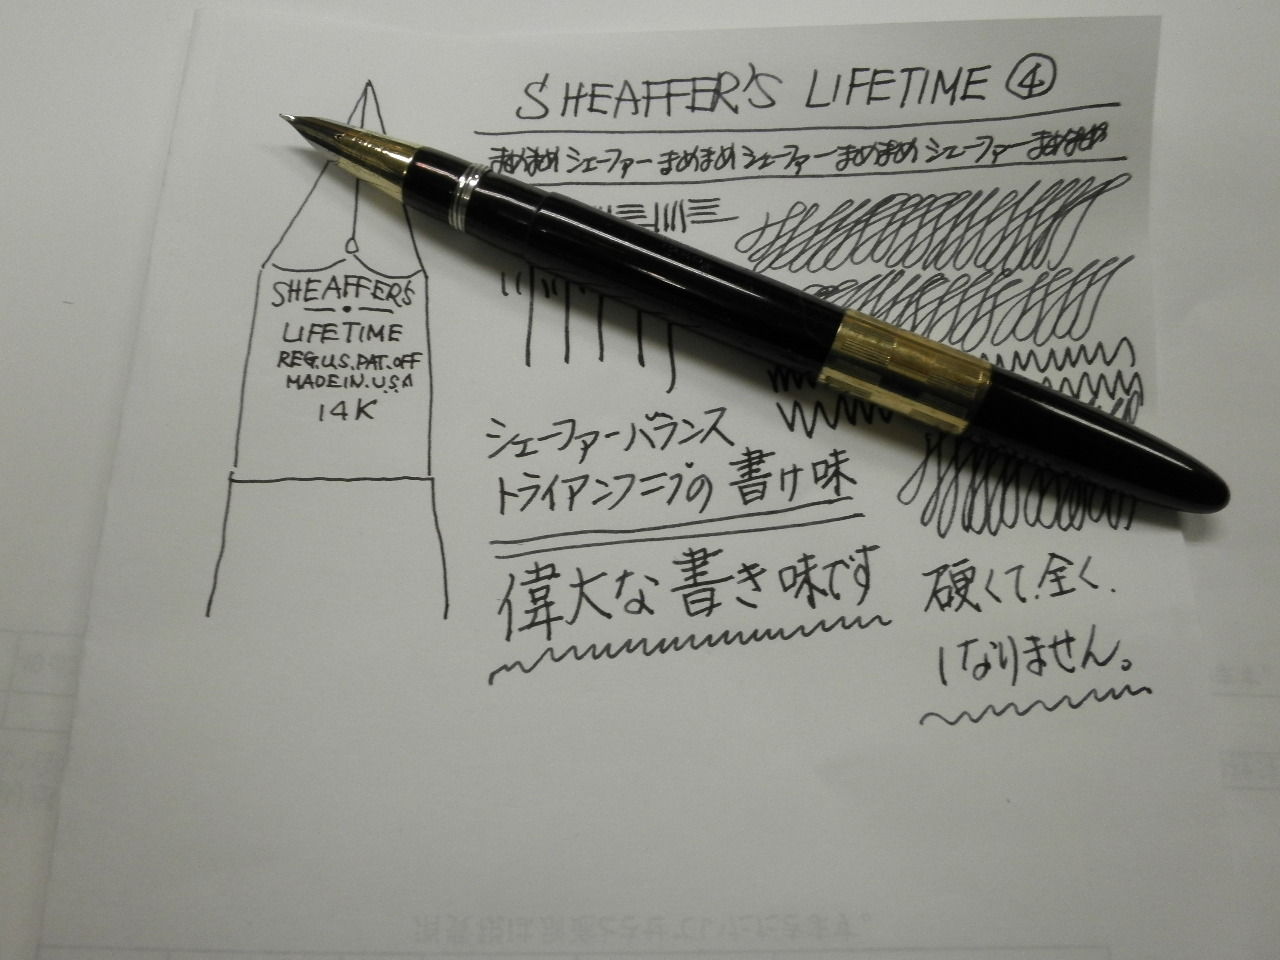 SHEAFFER'S LIFETIME ④
まめまめ シェーファー まめまめ シェーファー まめまめ シェーファー まめまめ
SHEAFFER'S
LIFETIME
REG.U.S.PAT.OFF
MADE IN.U.S.A
14K
シェーファーバランス
トライアンフニブの書け味
偉大な書き味です
硬くて.全く.
しなりません。